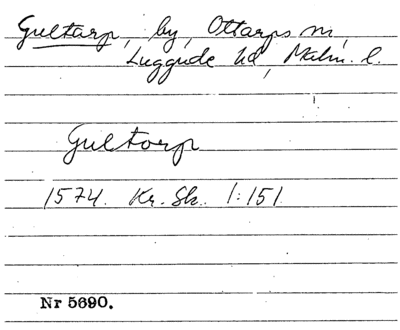 Gultarp, by, Ottarps sn,
Luggude hd, Malm. l.
Gultorp
1574. Kr. Sk. 1:151.
Nr 5690.